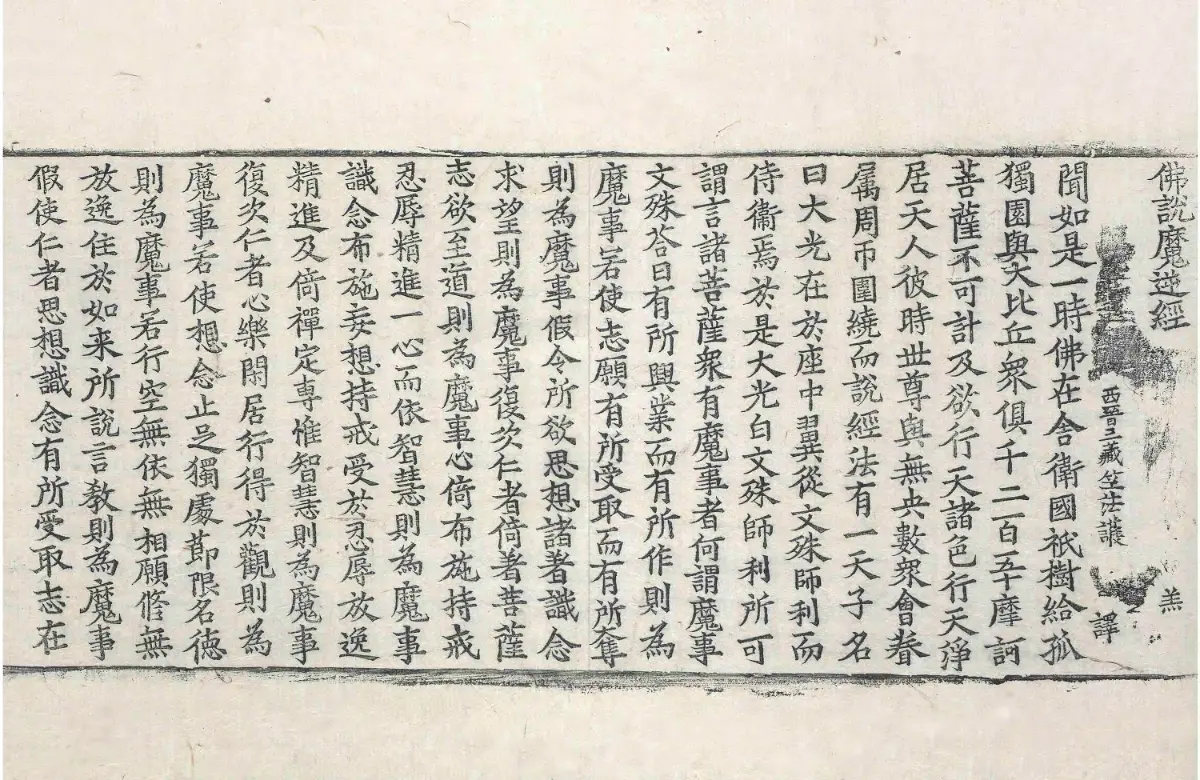 佛說魔逆經 羔
西晉三藏竺法護 譯
聞如是一時佛在舍衛國祇樹給孤
獨園與大比丘眾俱千二百五十摩訶
菩薩不可計及欲行天諸色行天淨
居天人彼時世尊與無央數衆會眷
属周帀圍繞而說經法有一天子名
曰大光在於座中翼從文殊師利而
侍衛焉於是大光白文殊師利所可
謂言諸菩薩衆有魔事者何謂魔事
文殊荅曰有所興業而有所作則為
魔事若使志願有所受取而有所奪
則為魔事假令所欲思想諸著識念
求望則為魔事復次仁者倚著菩薩
志欲至道則為魔事心倚布施持戒
忍辱精進一心而依智慧則為魔事
識念布施妄想持戒受於忍辱放逸
精進及倚禪定專惟智慧則為魔事
復次仁者心樂閑居行得於觀則為
魔事若使想念止足獨處節限名德
則為魔事若行空無依無相願脩無
放逸住於如来所說言教則為魔事
假使仁者思想識念有所受取志在